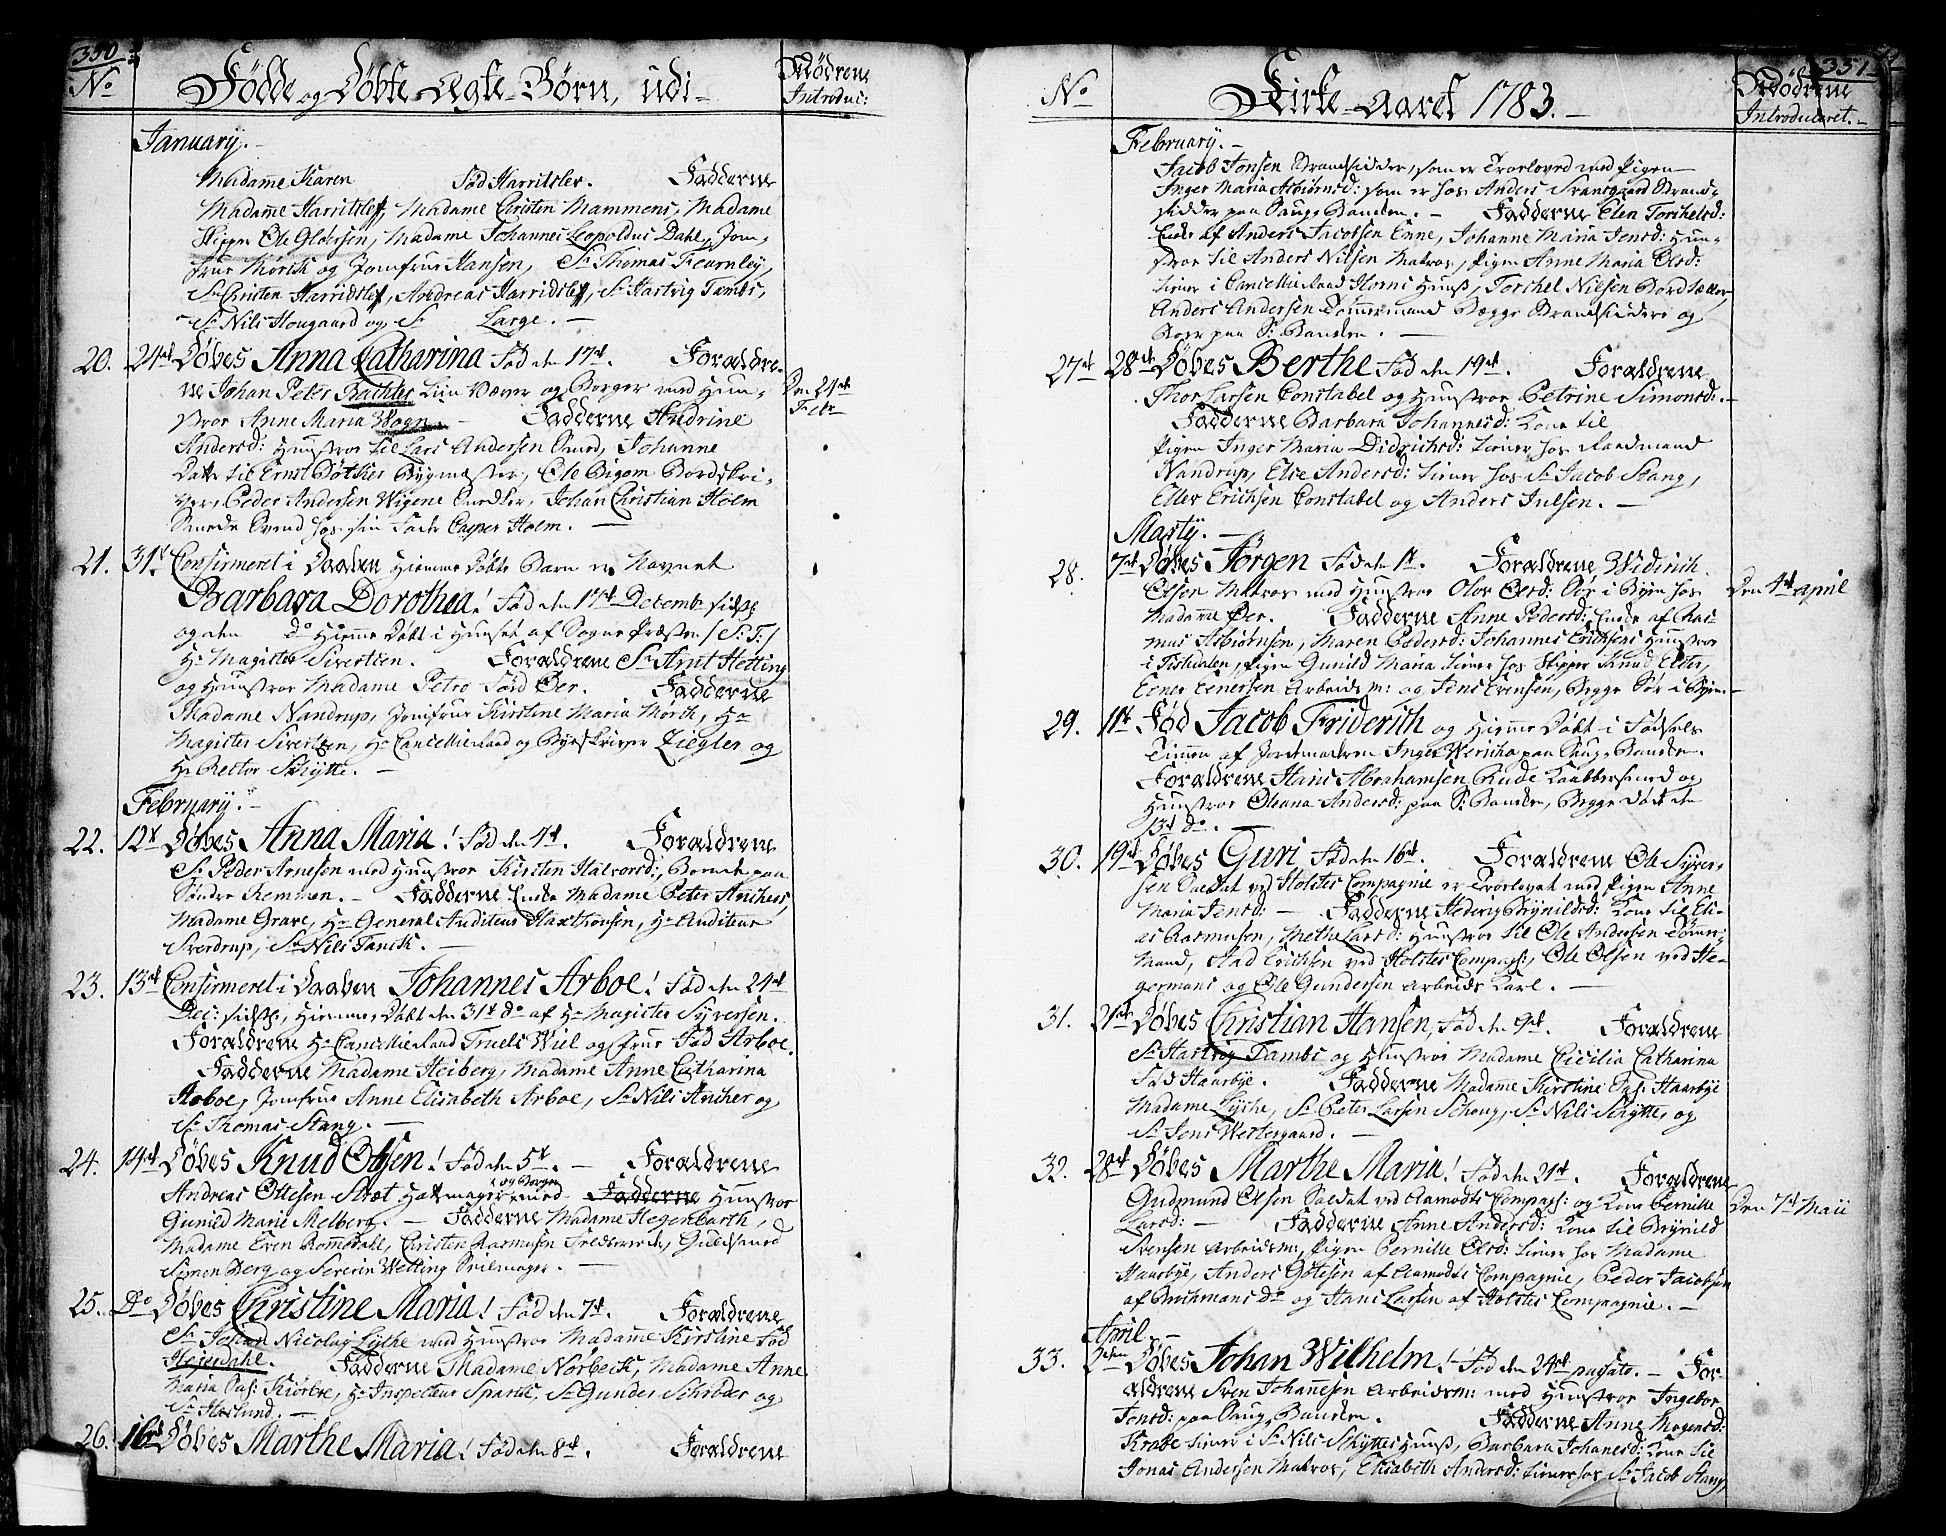 350
No
Födde og Döbte Ægte-Börn, udi-
Mödrene
Introduc:
January. -
Madame Karen Fød Harritslef. Fadderne
Madame Harritslef, Madame Christen Mammens, Madame
Skipper Ole Gløersen, Madame Johannes Leopoldus Dahl, Jom-
frue Morik og Jomfrue Hansen, Sr Thomas Fearnley,
Sr Christen Harridslef, Andreas Harridslef, Sr Hartvig Tambs,
Sr Nils Hougaard og Sr Large. -
20. 24de Döbes Anna Catharina Fød den 17de. Foraldre-
ne Johan Peter Bachler Liin Væver og Borger med Huu-
stroe Anne Maria Wogn - Fadderne Andrine
Den 21de
Febr
Andersd: Huustroe til Lars Andersen Smed, Johanne
Datter til Ernst Döthes Bygmæster, Ole Bigom Bordskri-
ver, Peder Andersen Wigene Snedker, Johan Christian Holm
Svend hos sin Fader Casper Holm. -
21. 31te Confirmeret i Daaben Hiemme Döbte Barn er Navnet
Barbara Dorothea! Fød den 17de Decemb. sidst
og den do Hiemme Döbt i Huuset af Sogne Præsten /S: T:/
Hr Magister Sivertsen. Foraldrene Sr Arnt Hetting
og Huustroe Madame Petro Fød Öer. Fadderne
Madame Nandrup, Jomfrue Kirstine Maria Mørch, Hr
Magister Sivertsen, Hr Cancellieraad og Byeskriver Ziegler og
Hr Rector Schytte. -
February. -
22. 12te Döbes Anna Maria! Fød den 4de. Foraldrene
Sr Peder Arnesen med Huustroe Kirsten Halvorsd:, Boende paa
Søndre Remmen. - Fadderne Enke Madame Peter Anchers,
Madame Grave, Hr General Auditeur Haxthousen, Hr Auditeur
Sverdrup, Sr Nils Tanck. -
23. 13de Confirmeret i Daaben Johannes Arboe! Fød den 24de
Dec: sidst, Hiemme Döbt den 31te do af Hr Magister Syversen.
Foraldrene Hr Cancellieraad Truels Wiel og Frue Fød Arboe.
Fadderne Madame Heiberg, Madame Anne Catharina
Arboe, Jomfrue Anne Elisabeth Arboe, Sr Nils Ancher og
Sr Thomas Stang. -
24. 14de Döbes Knud Olsen! Fød den 5te. - Foraldrene
og Borger
Andreas Ottesen Stræt Hattemager med Fadderne Huustroe
Gunild Marie Melberg. - Fadderne Madame Hegenbarth,
Madame Even Romsdahl, Christen Rasmusen Frederværk, Guldsmed
Simon Berg og Severin Wetting Parükmager. -
25. Do Döbes Christine Maria! Fød den 7de. Foraldrene
Sr Johan Nicolay Lyche med Huustroe Madame Kirstine Fød
Hejerdahl. Fadderne Madame Norbech, Madame Anne
Maria Pas: Kiørboe, Hr Inspecteur Sparck, Sr Gunder Schrøder og
Sr Heslund. -
26. 16de Döbes Marthe Maria! Fød den 8de. Foraldrene
351
No
Kirke-Aaret 1783. -
Mödrene
Introduceret. -
February. -
Jacob Jonsen Strandsidder, som er Troelovet med Pigen
Inger Maria Asbiørnsd: som er hos Anders Svansgaard Strand-
sidder paa Saugs Banden. - Fadderne Elen Torchelsd:
Enke af Anders Jacobsen Enne, Johanne Maria Jensd: Huu-
stroe til Anders Nilsen Matros, Pigen Anne Maria Olsd:
tiener i Cancellieraad Horns Huus, Torchel Nilsen Bord Sætter,
Anders Andersen Tømmermand Begge Strandsiddere og
Boer paa S: Banden. -
27de 28de Döbes Berthe Fød den 19de. Foraldrene
Thor Larsen Constabel og Huustroe Petrine Simonsd: -
Fadderne Barbara Johannesd: Kone til
Pigen Inger Maria Didrichsd: tiener hos Raadmand
Nandrup, Else Andersd: tiener hos Sr Jacob Stang,
Eller Erichsen Constabel og Anders Julsen. -
Marty. -
28. 7de Döbes Jørgen Fød den 1te. Foraldrene Widirich
Olsen Matros med Huustroe Olor Olsd: Bør i Byen hos
Den 4de april
Madame Öer. Fadderne Anne Pedersd: Enke af Ras-
mus Asbiørnsen, Maren Pedersd: Johannes Erichsens Huustroe
i Tistedalen, Pigen Gunild Maria tiener hos Skipper Knud Elter,
Ener Enersen Arbeidsm: og Jens Evensen, Begge Bør i Byen -
29. 11te Fød Jacob Friderich og Hiemme Döbt i Fødsels
Timen af Jordemoderen Inger Wericha paa Saugs Banden.
Foraldrene Hans Abrahamsen Rude Kaabbersmed og
Huustroe Oleana Andersd: paa S: Banden, Begge Döde den
13de do. -
30. 19de Döbes Guri Fød den 16de. Foraldrene Ole Syver-
sen Soldat ved Holstes Compagnie er Troelovet med Pigen Anne
Maria Jensd: - Fadderne Hedevig Brynildsd: Kone til Eli-
as Rasmusen, Methe Larsd: Huustroe til Ole Andersen Tømer-
mand, Mad Erichsen ved Holstes Compags:, Ole Olsen ved He-
germans og Ole Gundersen Arbeids Karl. -
31. 21de Döbes Christian Hansen, Fød den 9de. Foraldrene
Sr Hartvig Tambs og Huustroe Madame Cicilia Catharina
Fød Haarbye. Fadderne Madame Kirstine Pas: Haarbye
Madame Lyche, Sr Peter Larsen Schoug, Sr Nils Schytte, og
Sr Jens Westergaard. -
32. 28de Döbes Marthe Maria! Fød den 21de. Foraldrene
Gudmund Olsen Soldat ved Aamodts Compags: og Kone Pernille
Den 7de Maii
Larsd: - Fadderne Anne Andersd: Kone til Brynild
Svensen Arbeidsm:, Pigen Pernille Olsd: tiener hos Madame
Haarbye, Anders Götesen af Aamodts Compagnie, Peder Jacobsen
af Brichmans do og Hans Larsen af Holstes Compagnie. -
April. -
33. 2den Döbes Johan Wilhelm! - Fød den 24de passato. - For-
aldrene Sven Johannesen Arbeidsm: med Huustroe Ingebor
Jensd: paa Saugs Banden. Fadderne Anne Mogensd:
Krabe tiener i Sr Nils Schyttes Huus, Barbara Johanesd: Kone til
Jonas Andersen Matros, Elisabeth Andersd: tiener hos Sr Jacob Stang,